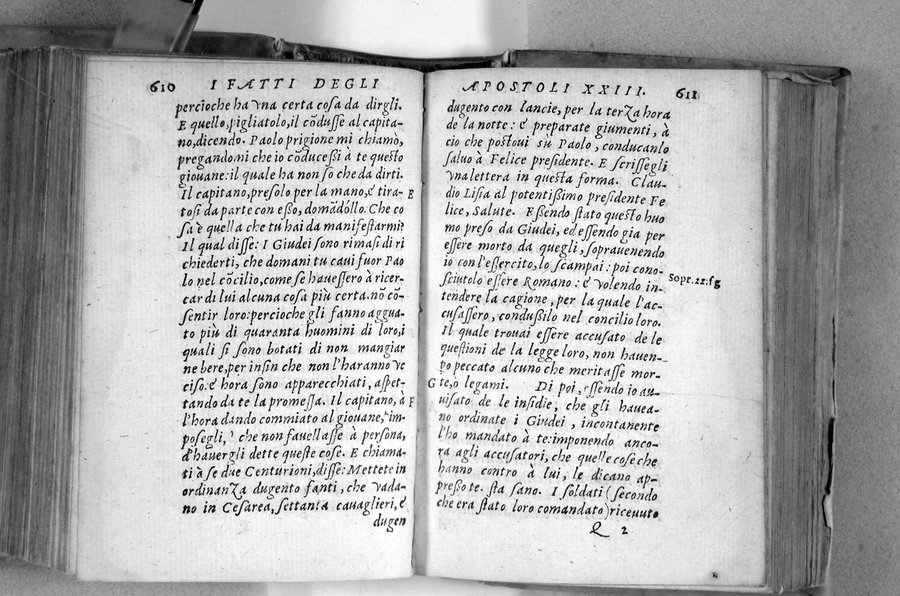 610 I FATTI DEGLI
percioche ha vna certa cosa da dirgli.
E quello, pigliatolo, il cõdusse al capita-
no, dicendo. Paolo prigione mi chiamò,
pregandomi che io cõducessi à te questo
giouane: il quale ha non so che da dirti.
Il capitano, presolo per la mano, é tira- E
tosi da parte con esso, domãdollo. Che co
sa è quella che tu hai da manifestarmi?
Il qual disse: I Giudei sono rimasi di ri
chiederti, che domani tu caui fuor Pao
lo nel cõcilio, come se hauessero à ricer-
car di lui alcuna cosa più certa. nõ cõ-
sentir loro: percioche gli fanno aggua-
to più di quaranta huomini di loro, i
quali si sono botati di non mangiar
ne bere, per insin che non l'haranno vc
ciso: é hora sono apparecchiati, aspet-
tando da te la promessa. Il capitano, à F
l'hora dando commiato al giouane, im-
posegli, che non fauellasse à persona,
d'hauergli dette queste cose. E chiama-
ti à se due Centurioni, disse: Mettete in
ordinanza dugento fanti, che vada-
no in Cesarea, settanta cauaglieri, é
dugen
APOSTOLI XXIII. 611
dugento con lancie, per la terza hora
de la notte: é preparate giumenti, à
cio che postoui sù Paolo, conducanlo
saluo à Felice presidente. E scrissegli
vna lettera in questa forma. Clau-
dio Lisia al potentissimo presidente Fe
lice, Salute. Essendo stato questo huo
mo preso da Giudei, ed essendo gia per
essere morto da quegli, soprauenendo
io con l'essercito, lo scampai: poi cono-
sciutolo essere Romano: é volendo in- Sopr. 22. fg
tendere la cagione, per la quale l'ac-
cusassero, condußilo nel concilio loro.
Il quale trouai essere accusato de le
questioni de la legge loro, non hauen-
po peccato alcuno che meritasse mor-
G te, ò legami. Di poi, essendo io au-
uisato de le insidie, che gli hauea-
no ordinate i Giudei, incontanente
l'ho mandato à te: imponendo anco-
ra agli accusatori, che quelle cose che
hanno contro à lui, le dicano ap-
presso te. sta sano. I soldati (secondo
che era stato loro comandato) riceuuto
Q 2